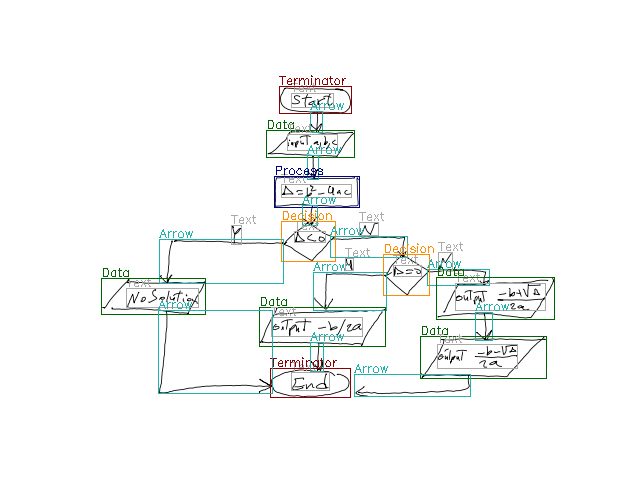 Terminator
Text
Start
Arrow
Data
Text
input a,b,c
Arrow
Process
Text
Δ=b²-4ac
Arrow
Text
Y
Decision
Text
Δ<0
Text
N
Arrow
Arrow
Text
Y
Decision
Text
Δ=0
Text
N
Arrow
Arrow
Data
Text
No Solution
Data
Text
output -b+√Δ
2a
Arrow
Data
Text
output -b/2a
Arrow
Arrow
Data
Text
output -b-√Δ
2a
Terminator
Text
End
Arrow